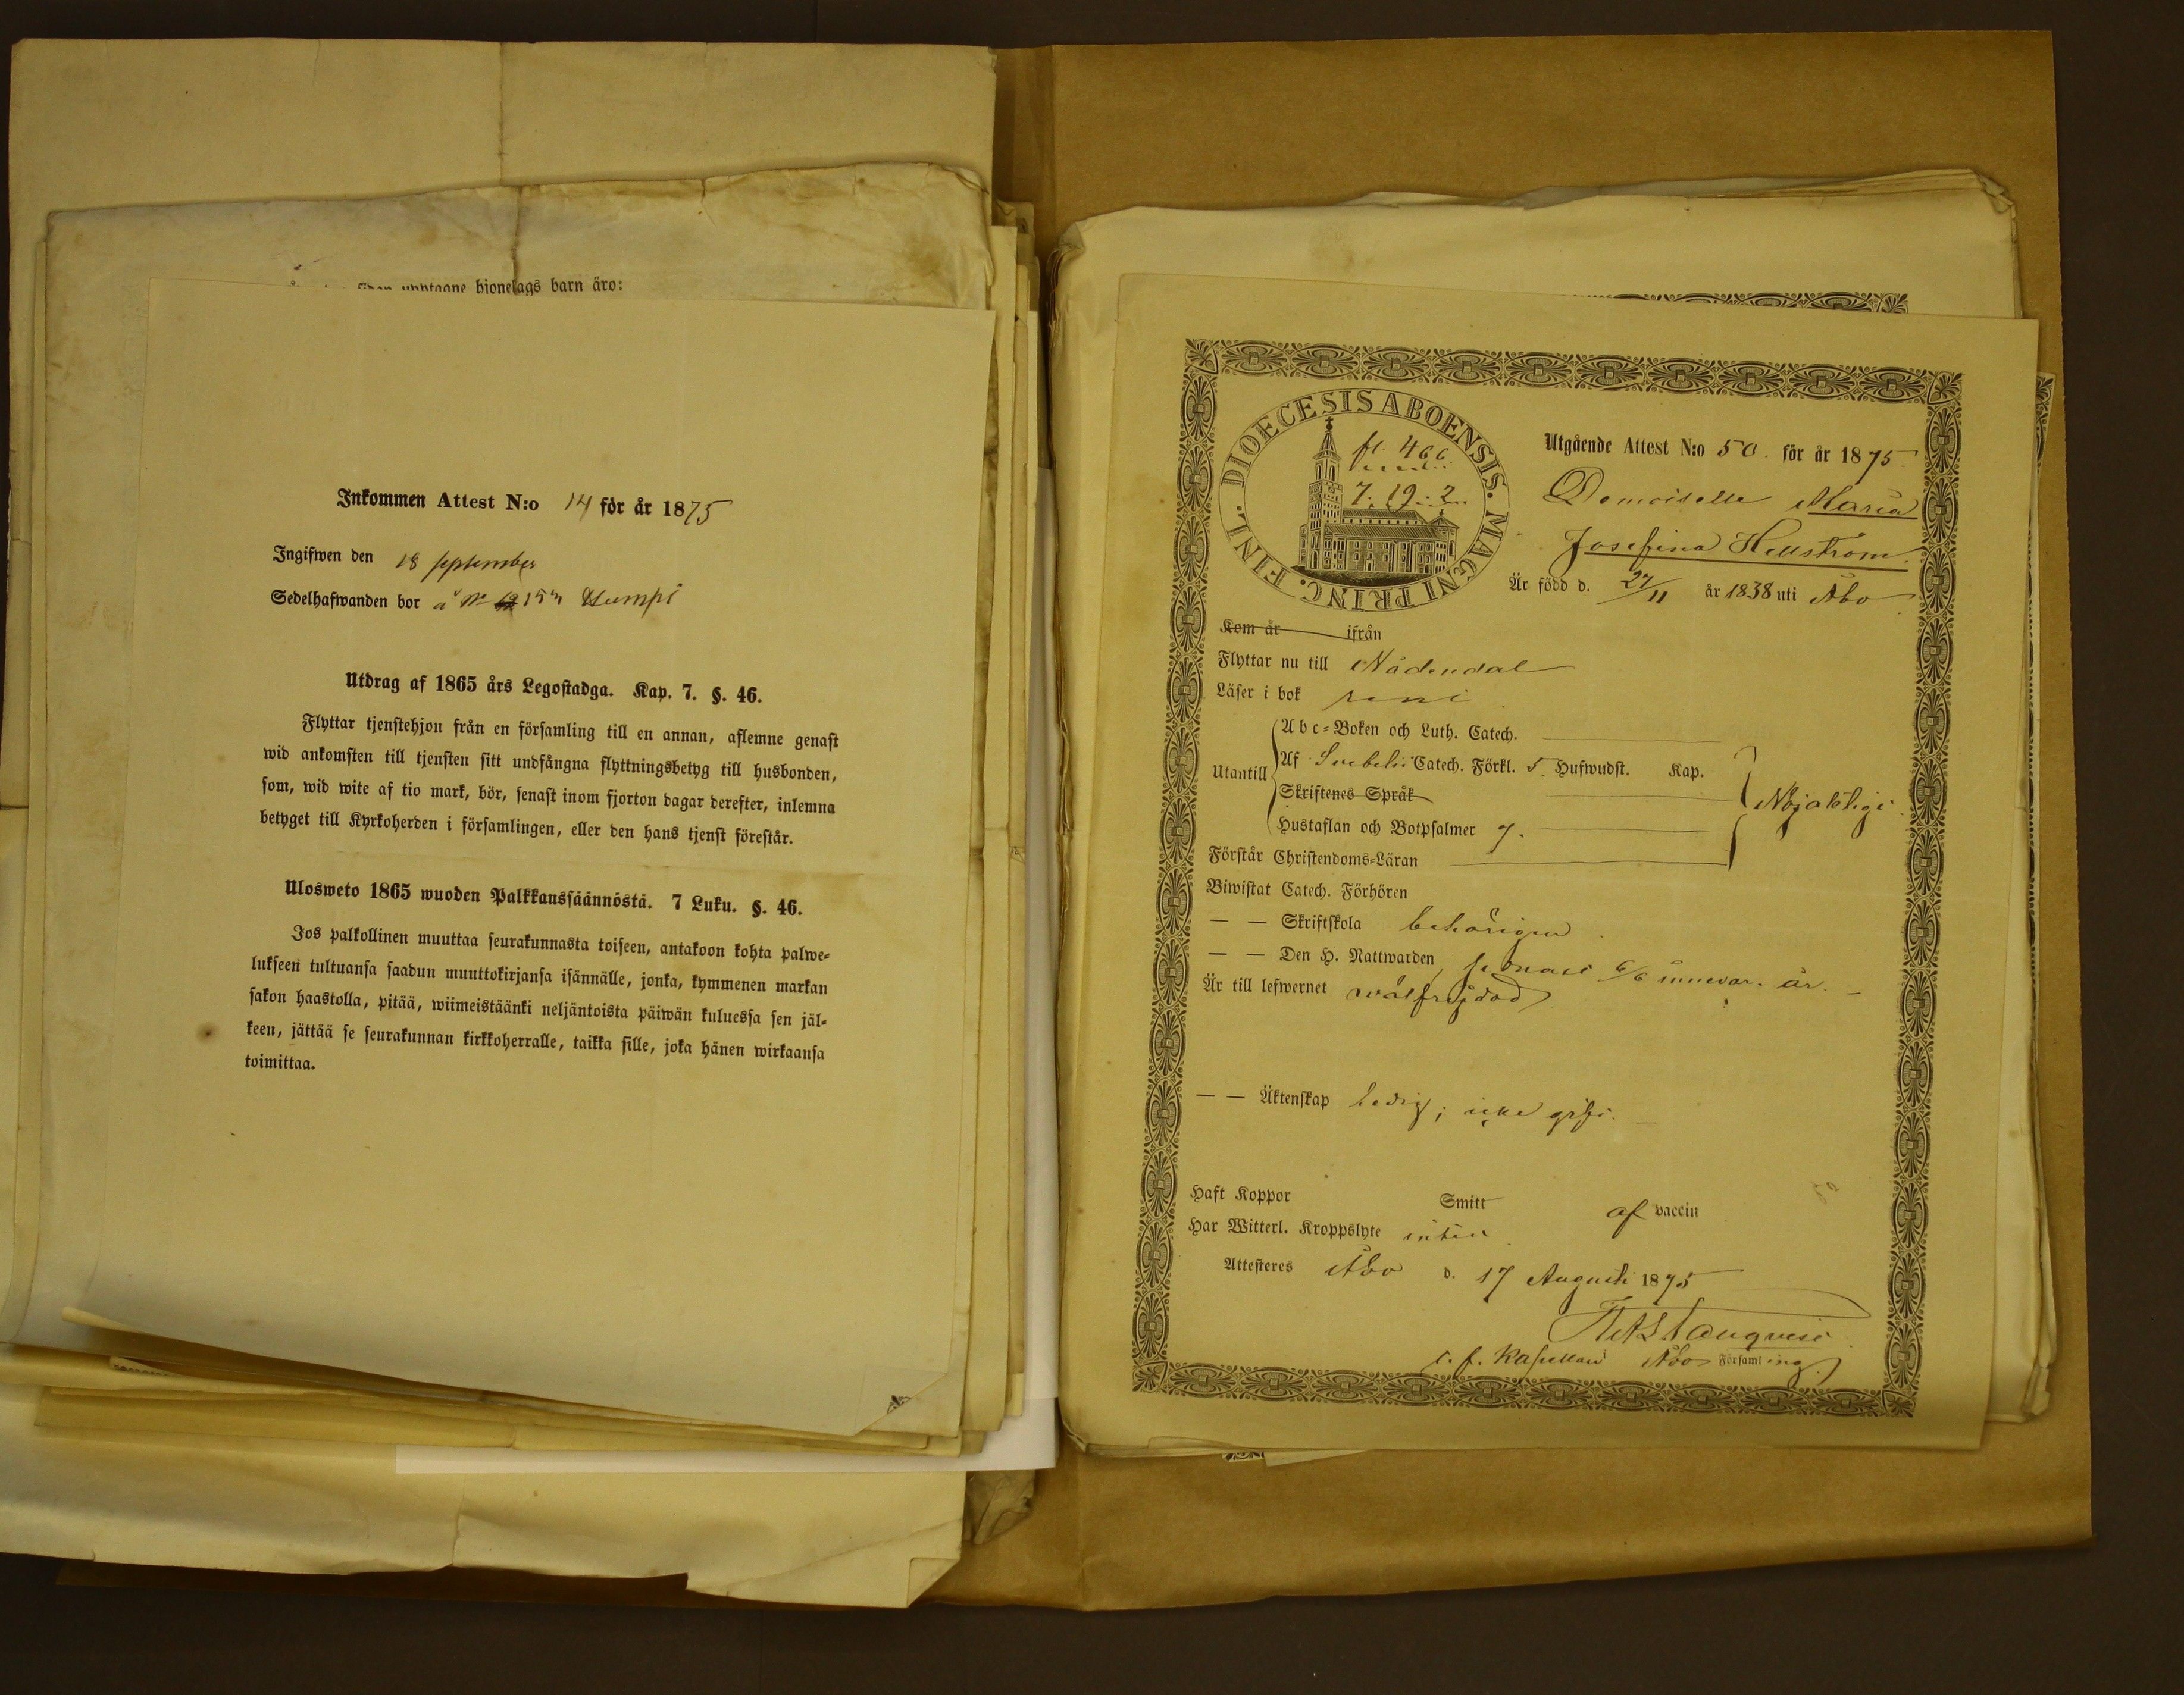 upptagne hjonelags barn äro:
Inkommen Attest N:o 14 för år 1875
Ingifwen den 18 september
Sedelhafwanden bor å No 15 Humpi
Utdrag af 1865 års Legostadga. Kap. 7. §. 46.
Flyttar tjenstehjon från en församling till en annan, aflemne genast
wid ankomsten till tjensten sitt undfångna flyttningsbetyg till husbonden,
som, wid wite af tio mark, bör, senast inom fjorton dagar derefter, inlemna
betyget till Kyrkoherden i församlingen, eller den hans tjenst förestår.
Ulosweto 1865 wuoden Palkkaussäännöstä. 7 Luku. §. 46.
Jos palkollinen muuttaa seurakunnasta toiseen, antakoon kohta palwe-
lukseen tultuansa saadun muuttokirjansa isännälle, jonka, kymmenen markan
sakon haastolla, pitää, wiimeistäänki neljäntoista päiwän kuluessa sen jäl-
keen, jättää se seurakunnan kirkkoherralle, taikka sille, joka hänen wirkaansa
toimittaa.
DIOECESIS ABOENSIS. MAGNI PRINC. FINL.
fl. 466
7. 19. 2.
Utgående Attest N:o 50. för år 1875.
Demoiselle Maria
Josefina Hellström.
Är född d. 27/11 år 1838 uti Åbo
Kom år ifrån
Flyttar nu till Nådendal
Läser i bok rent
Utantill
Abc-Boken och Luth. Catech.
Af Svebelii Catech. Förkl. 5. Hufwudst. Kap.
Skriftenes Språk
Hustaflan och Botpsalmer 7.
Nöjaktigt.
Förstår Christendoms-Läran
Biwistat Catech. Förhören
— — Skriftskola behörigen
— — Den H. Nattwarden senast 6/6 innevar. år.
Är till lefwernet wälfrejdad
— — Äktenskap ledig; icke gift.
Haft Koppor Smitt af vaccin
Har Witterl. Kroppslyte intet
Attesteres Åbo d. 17 Augusti 1875
t. f. Kapellan i Åbo Församling.